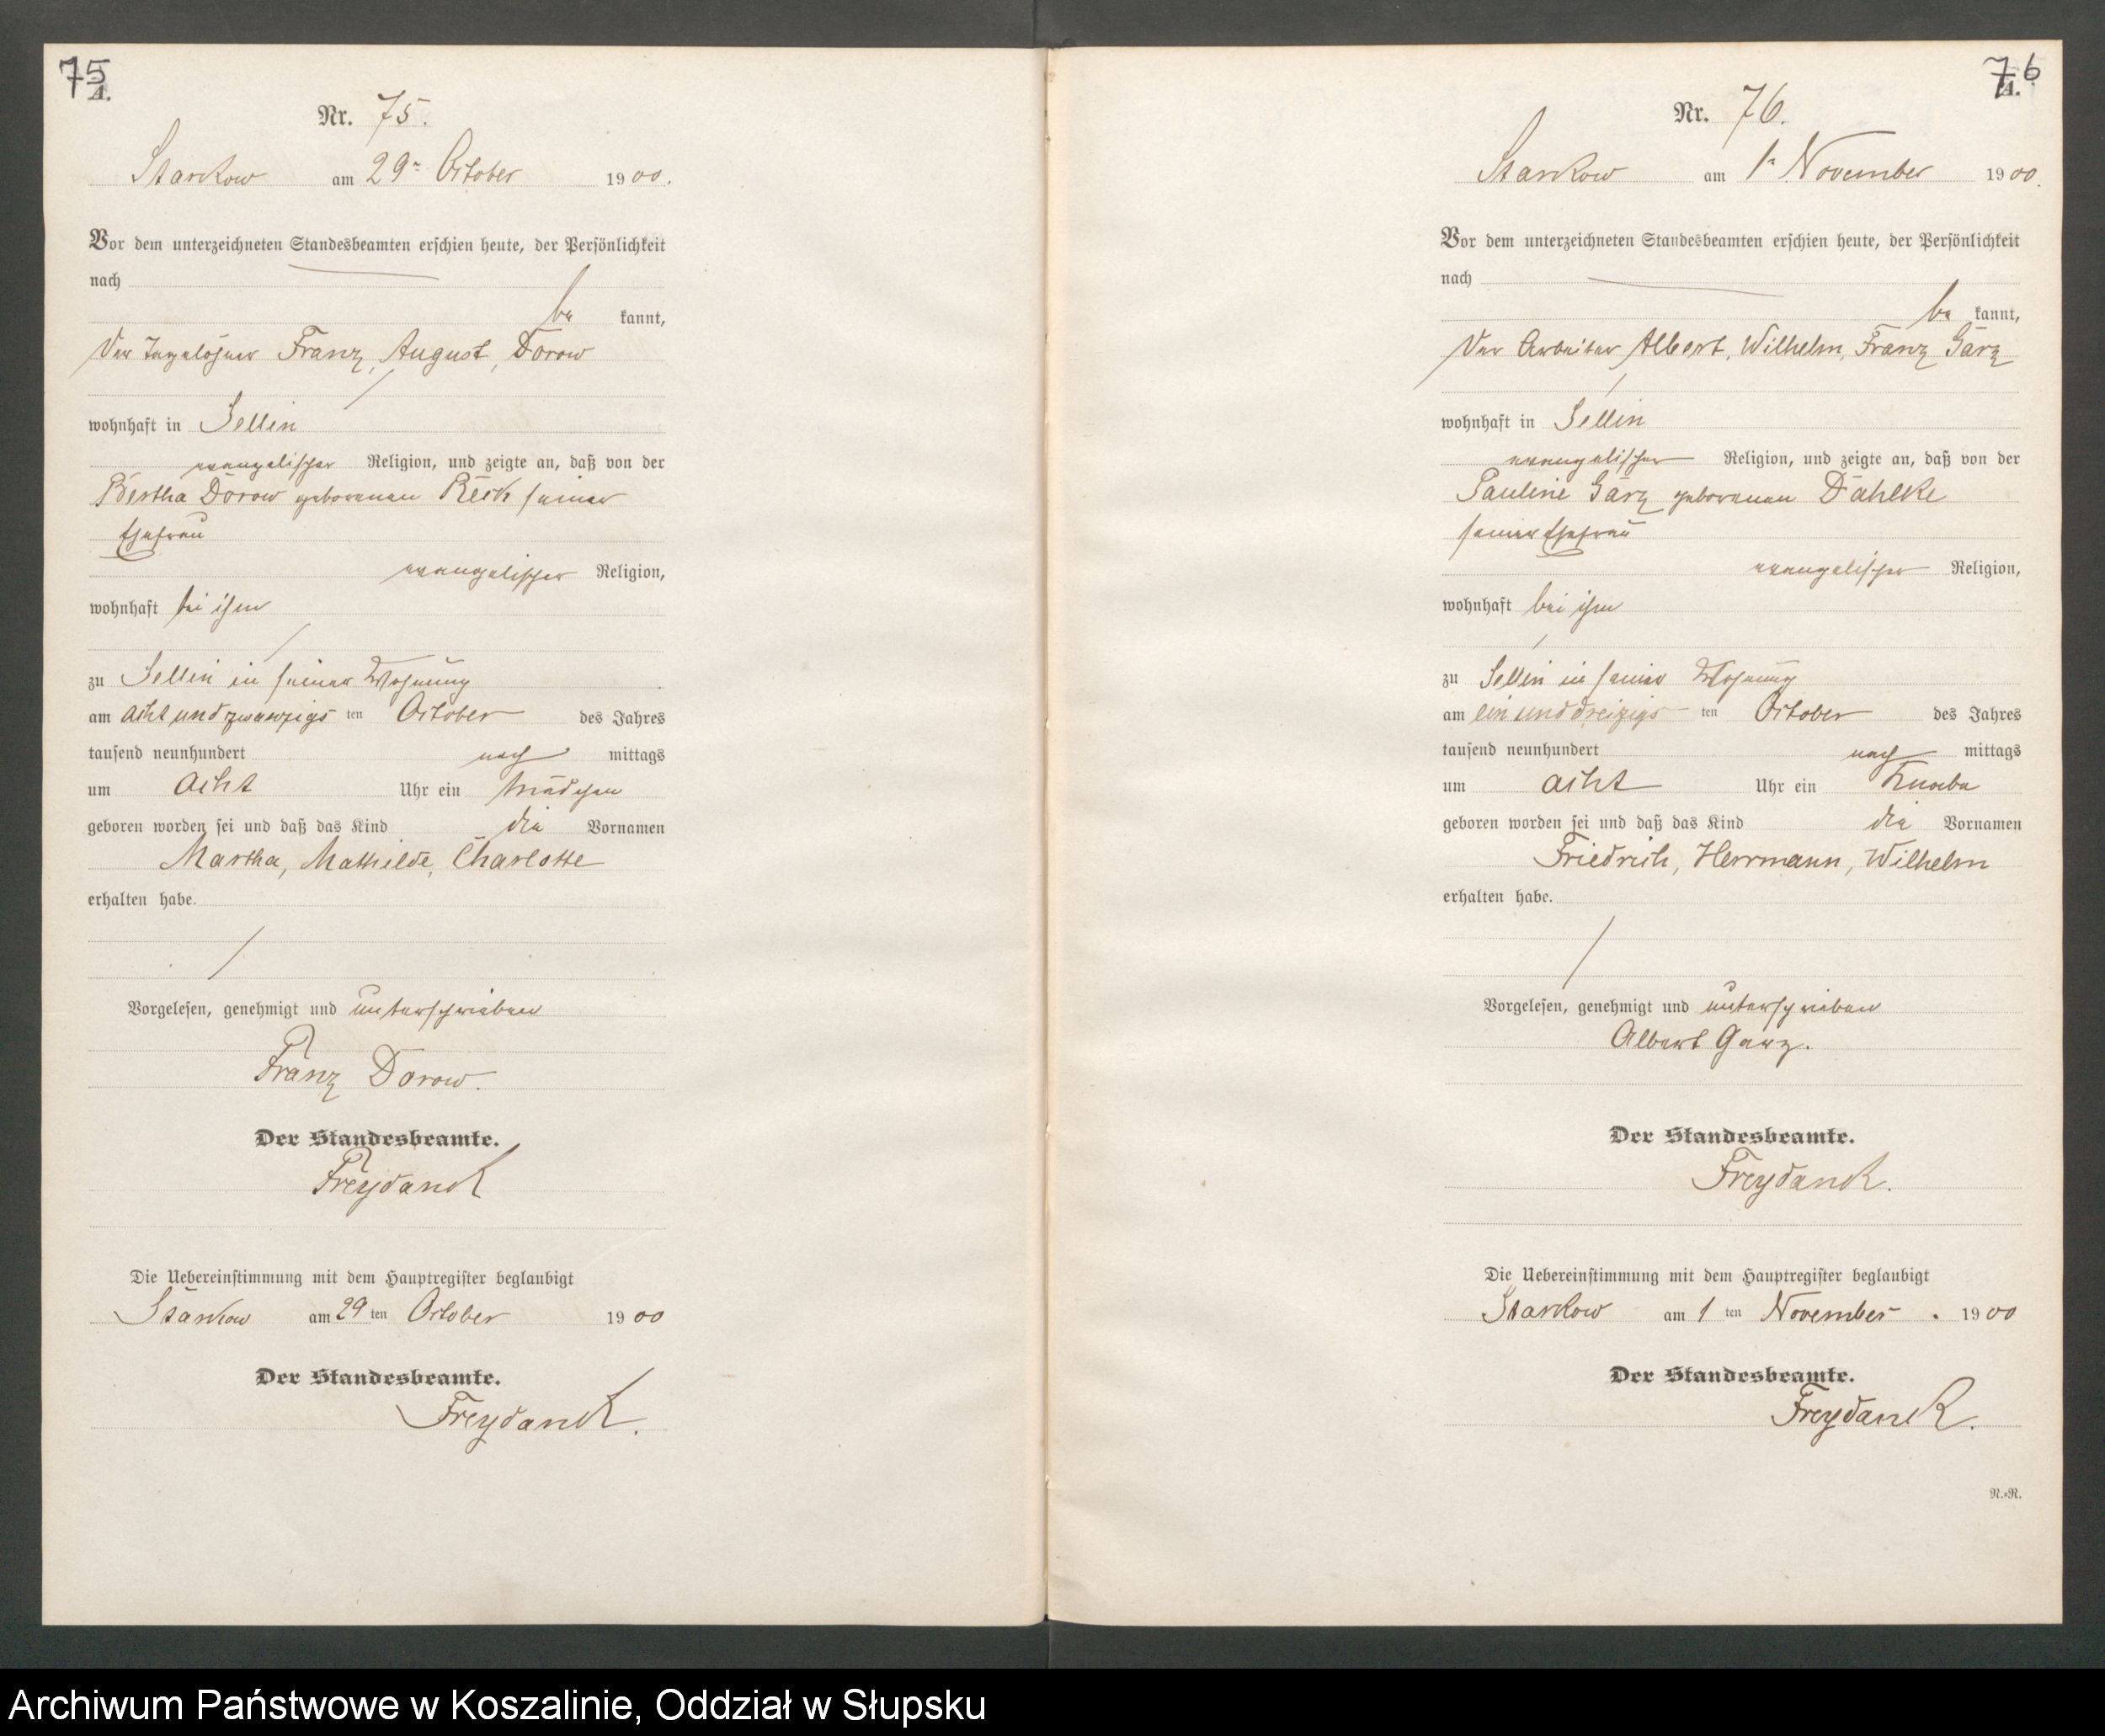 75
A.
Nr. 75.
Starkow am 29ten October 1900.
Vor dem unterzeichneten Standesbeamten erschien heute, der Persönlichkeit
nach
be kannt,
der Tagelöhner Franz, August, Dorow
wohnhaft in Sellin
evangelischer Religion, und zeigte an, daß von der
Bertha Dorow geborenen Reck seiner
Ehefrau
evangelischer Religion,
wohnhaft bei ihm
zu Sellin in seiner Wohnung
am acht und zwanzigs ten October des Jahres
tausend neunhundert nach mittags
um acht Uhr ein Mädchen
geboren worden sei und daß das Kind die Vornamen
Martha, Mathilde, Charlotte
erhalten habe.
Vorgelesen, genehmigt und unterschrieben
Franz Dorow.
Der Standesbeamte.
Freydanck
Die Uebereinstimmung mit dem Hauptregister beglaubigt
Starkow am 29 ten October 1900
Der Standesbeamte.
Freydanck.
76
A.
Nr. 76.
Starkow am 1ten November 1900.
Vor dem unterzeichneten Standesbeamten erschien heute, der Persönlichkeit
nach
be kannt,
der Arbeiter Albert, Wilhelm, Franz Garz
wohnhaft in Sellin
evangelischer Religion, und zeigte an, daß von der
Pauline Garz geborenen Dahlke
seiner Ehefrau
evangelischer Religion,
wohnhaft bei ihm
zu Sellin in seiner Wohnung
am ein und dreizigs ten October des Jahres
tausend neunhundert nach mittags
um acht Uhr ein Knabe
geboren worden sei und daß das Kind die Vornamen
Friedrich, Herrmann, Wilhelm
erhalten habe.
Vorgelesen, genehmigt und unterschrieben
Albert Garz.
Der Standesbeamte.
Freydanck.
Die Uebereinstimmung mit dem Hauptregister beglaubigt
Starkow am 1 ten November. 1900
Der Standesbeamte.
Freydanck.
N.=R.
Archiwum Państwowe w Koszalinie, Oddział w Słupsku